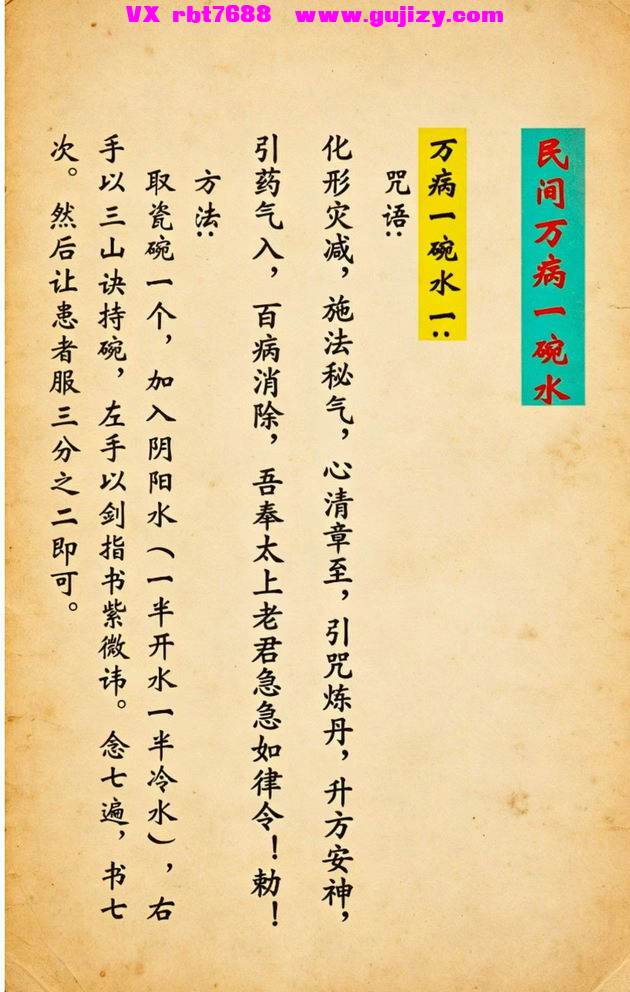 VX rbt7688 www.gujizy.com
民间万病一碗水
万病一碗水一：
咒语：
化形灾减，施法秘气，心清章至，引咒炼丹，升方安神，
引药气入，百病消除，吾奉太上老君急急如律令！勅！
方法：
取瓷碗一个，加入阴阳水（一半开水一半冷水），右
手以三山诀持碗，左手以剑指书紫微讳。念七遍，书七
次。然后让患者服三分之二即可。